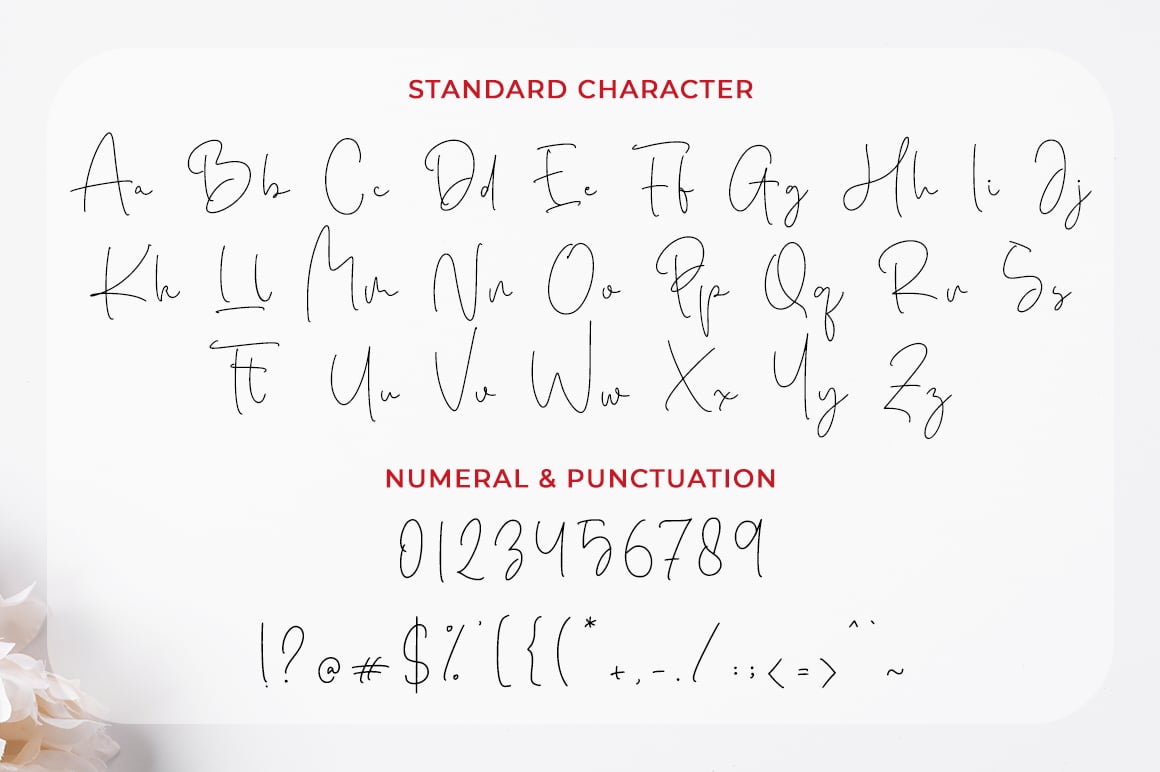 STANDARD CHARACTER
Aa Bb Cc Dd Ee Ff Gg Hh Ii Jj
Kk Ll Mm Nn Oo Pp Qq Rr Ss
Tt Uu Vv Ww Xx Yy Zz
NUMERAL & PUNCTUATION
0123456789
!?@#$%'[{(*+,-./:;<=>^`~